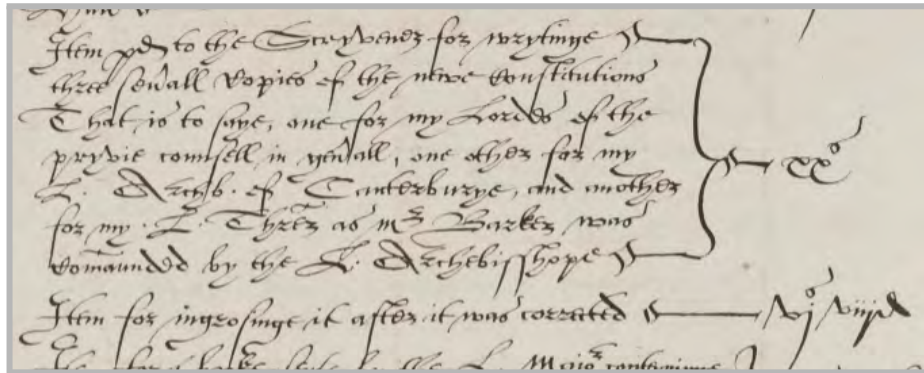 Item pd to the Scryvener for wrytinge
three sevall Copies of the newe Constitutions
That is to saye, one for my Lordes of the
pryvie counsell in genall, one other for my
L. Archb. of Canterburye, and another
for my L. Threr as mr Barker was
comaunded by the L. Archebisshope
xxs
Item for ingrosinge it after it was corrected vjs viijd